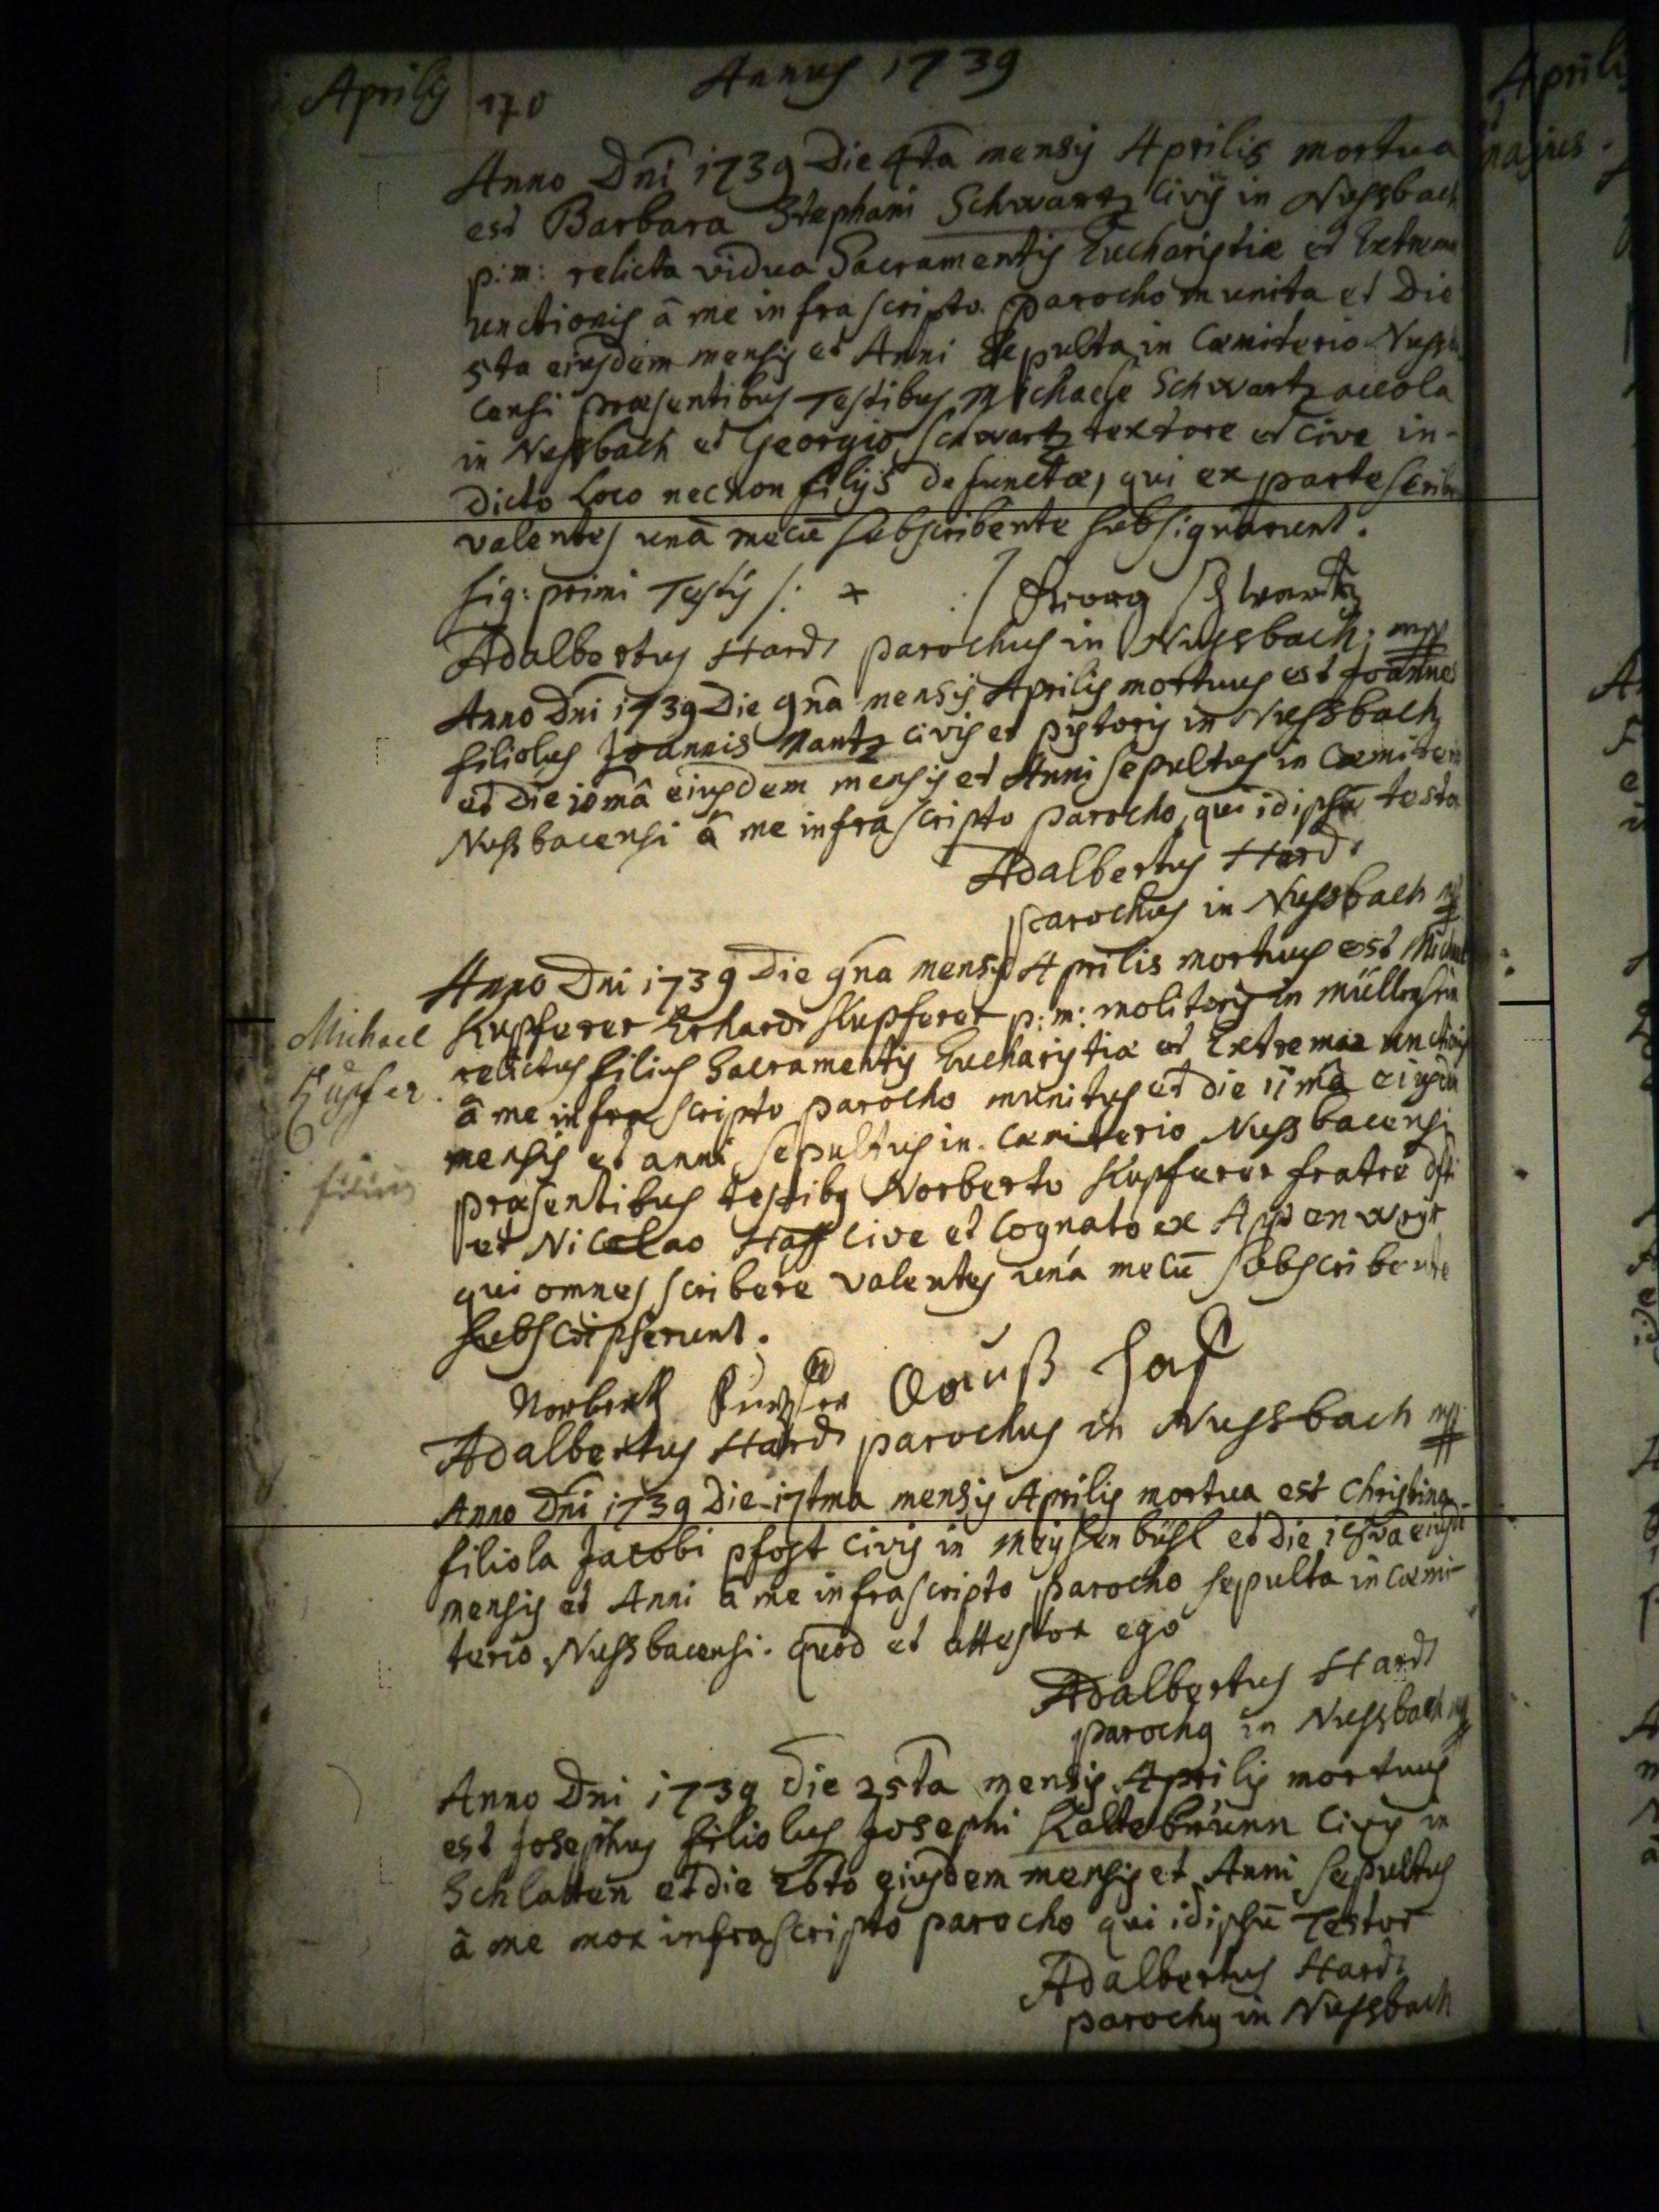 Aprilis 170 Annus 1739
Anno Dni 1739 Die 4ta mensis Aprilis mortua
est Barbara Stephani Schwartz civis in Nussbach
p: m: relicta vidua Sacramentis Eucharistiæ et Extrem
unctionis â me infra scripto parocho munita et Die
5ta eiusdem mensis et Anni sepulta in Cæmiterio Nussb
censi præsentibus Testibus Michaele Schwartz accola
in Nussbach et Georgio Schwartz textore et cive in-
dicto Loco necnon filijs defunctæ, qui ex parte scribe
valentes unâ mecū subscribente subsignârunt.
sig: primi Testis /: + :/ Georg Schwartz
Adalbertus Hardt parochus in Nussbach, mp
Anno Dni 1739 Die 9na mensis Aprilis mortuus est Joannes
filiolus Joannis Nantz civis et pistoris in Nussbach
et Die 10mâ eiusdem mensis et Anni sepultus in Cæmiterio
Nussbacensi â me infra scripto parocho, qui idipsū testo
Adalbertus Hardt
parochus in Nussbach mp
Anno Dni 1739 Die 9na mensis Aprilis mortuus est Michael
Kupferer Erhardi Kupferer p: m: molitoris in
relictus filius Sacramentis Eucharistiæ et Extremæ unctionis
â me infra scripto parocho munitus et die 11ma eiusdem
mensis et anni sepultus in Cæmiterio Nussbacensi
præsentibus testibus Norberto Kupferer fratre dfti
et Nicolao Hass cive et cognato ex Appenweyr
qui omnes scribere valentes unâ mecū subscribente
subscripserunt.
Michael
Kupfer.
filius
Norbert
Adalbertus Hardt parochus in Nussbach mp
Anno Dni 1739 Die 17tma mensis Aprilis mortua est Christina
filiola Jacobi pfost civis in Meysenbühl et die 18va eiusd
mensis et Anni â me infrascripto parocho sepulta in Cæmi-
terio Nussbacensi. quod et attestor ego
Adalbertus Hardt
parochus in Nussbach mp
Anno Dni 1739 Die 25ta mensis Aprilis mortuus
est Josephus filiolus Josephi Kaltebrunn civis in
Schlatten et die 26to eiusdem mensis et Anni sepultus
â me mox infrascripto parocho qui idipsū Testor
Adalbertus Hardt
parochus in Nussbach